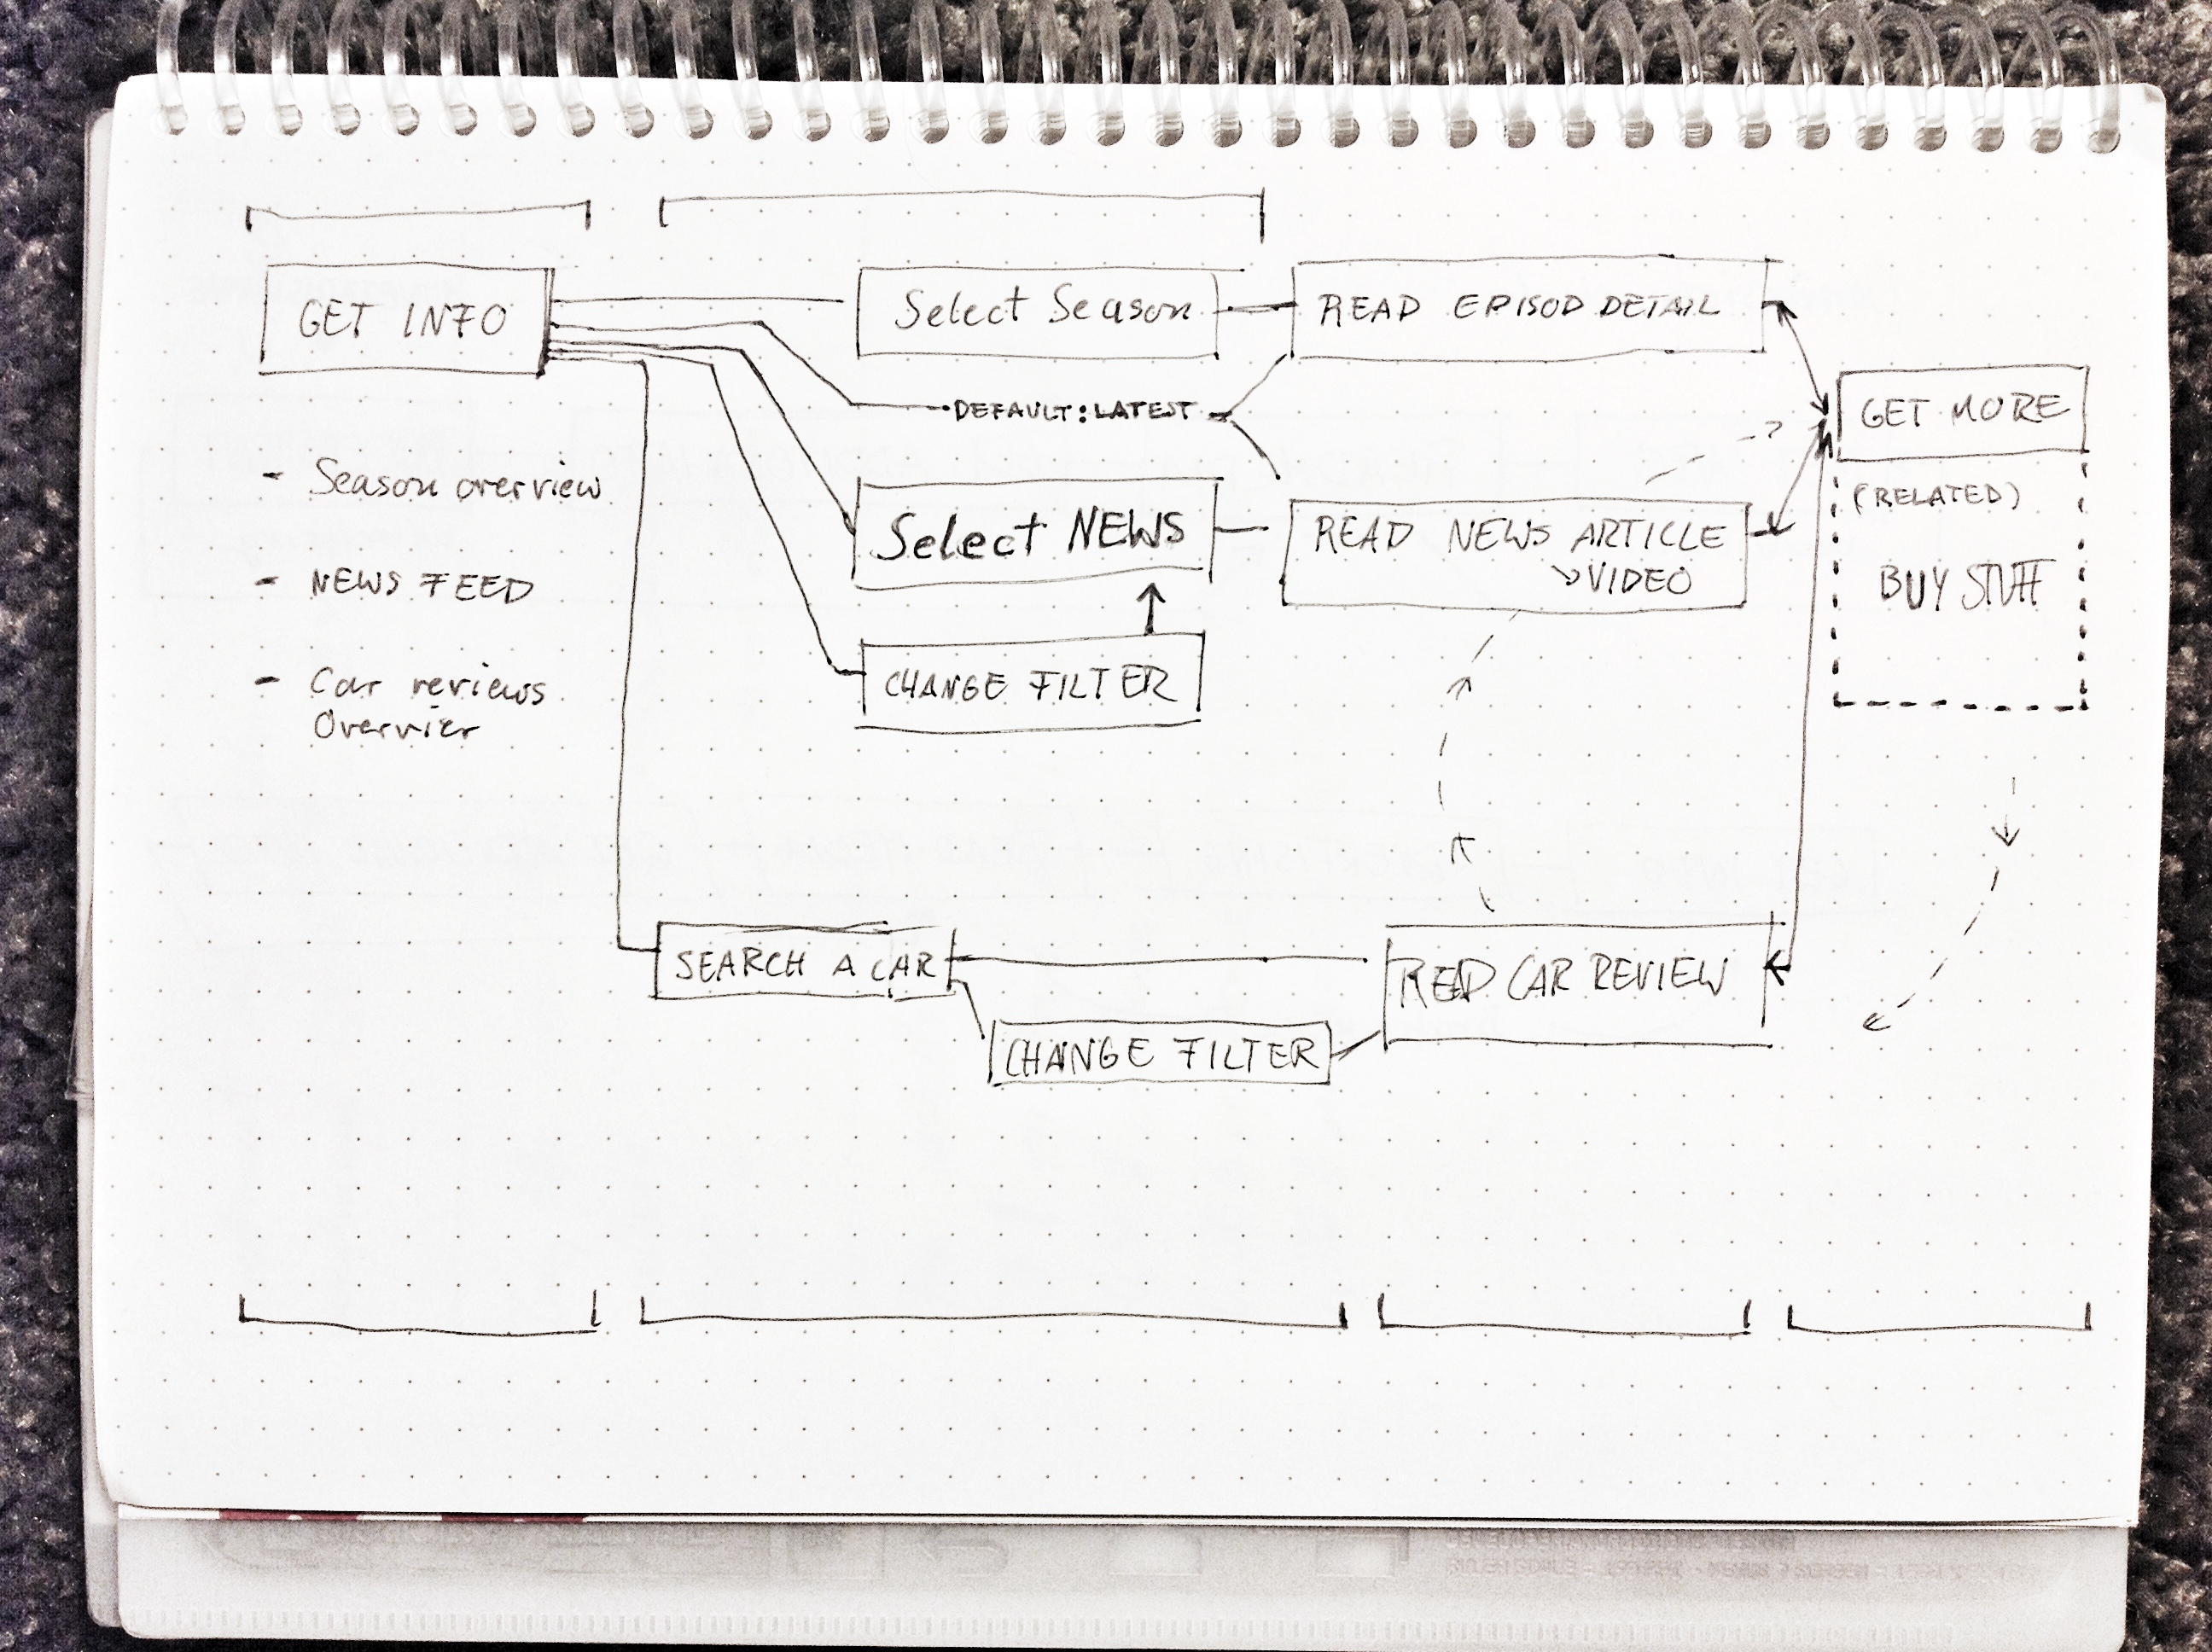 GET INFO
Select Season
READ EPISOD DETAIL
DEFAULT:LATEST
GET MORE
- Season overview
(RELATED)
Select NEWS
READ NEWS ARTICLE
VIDEO
- NEWS FEED
BUY STUFF
- Car reviews
Overvier
CHANGE FILTER
SEARCH A CAR
READ CAR REVIEW
CHANGE FILTER